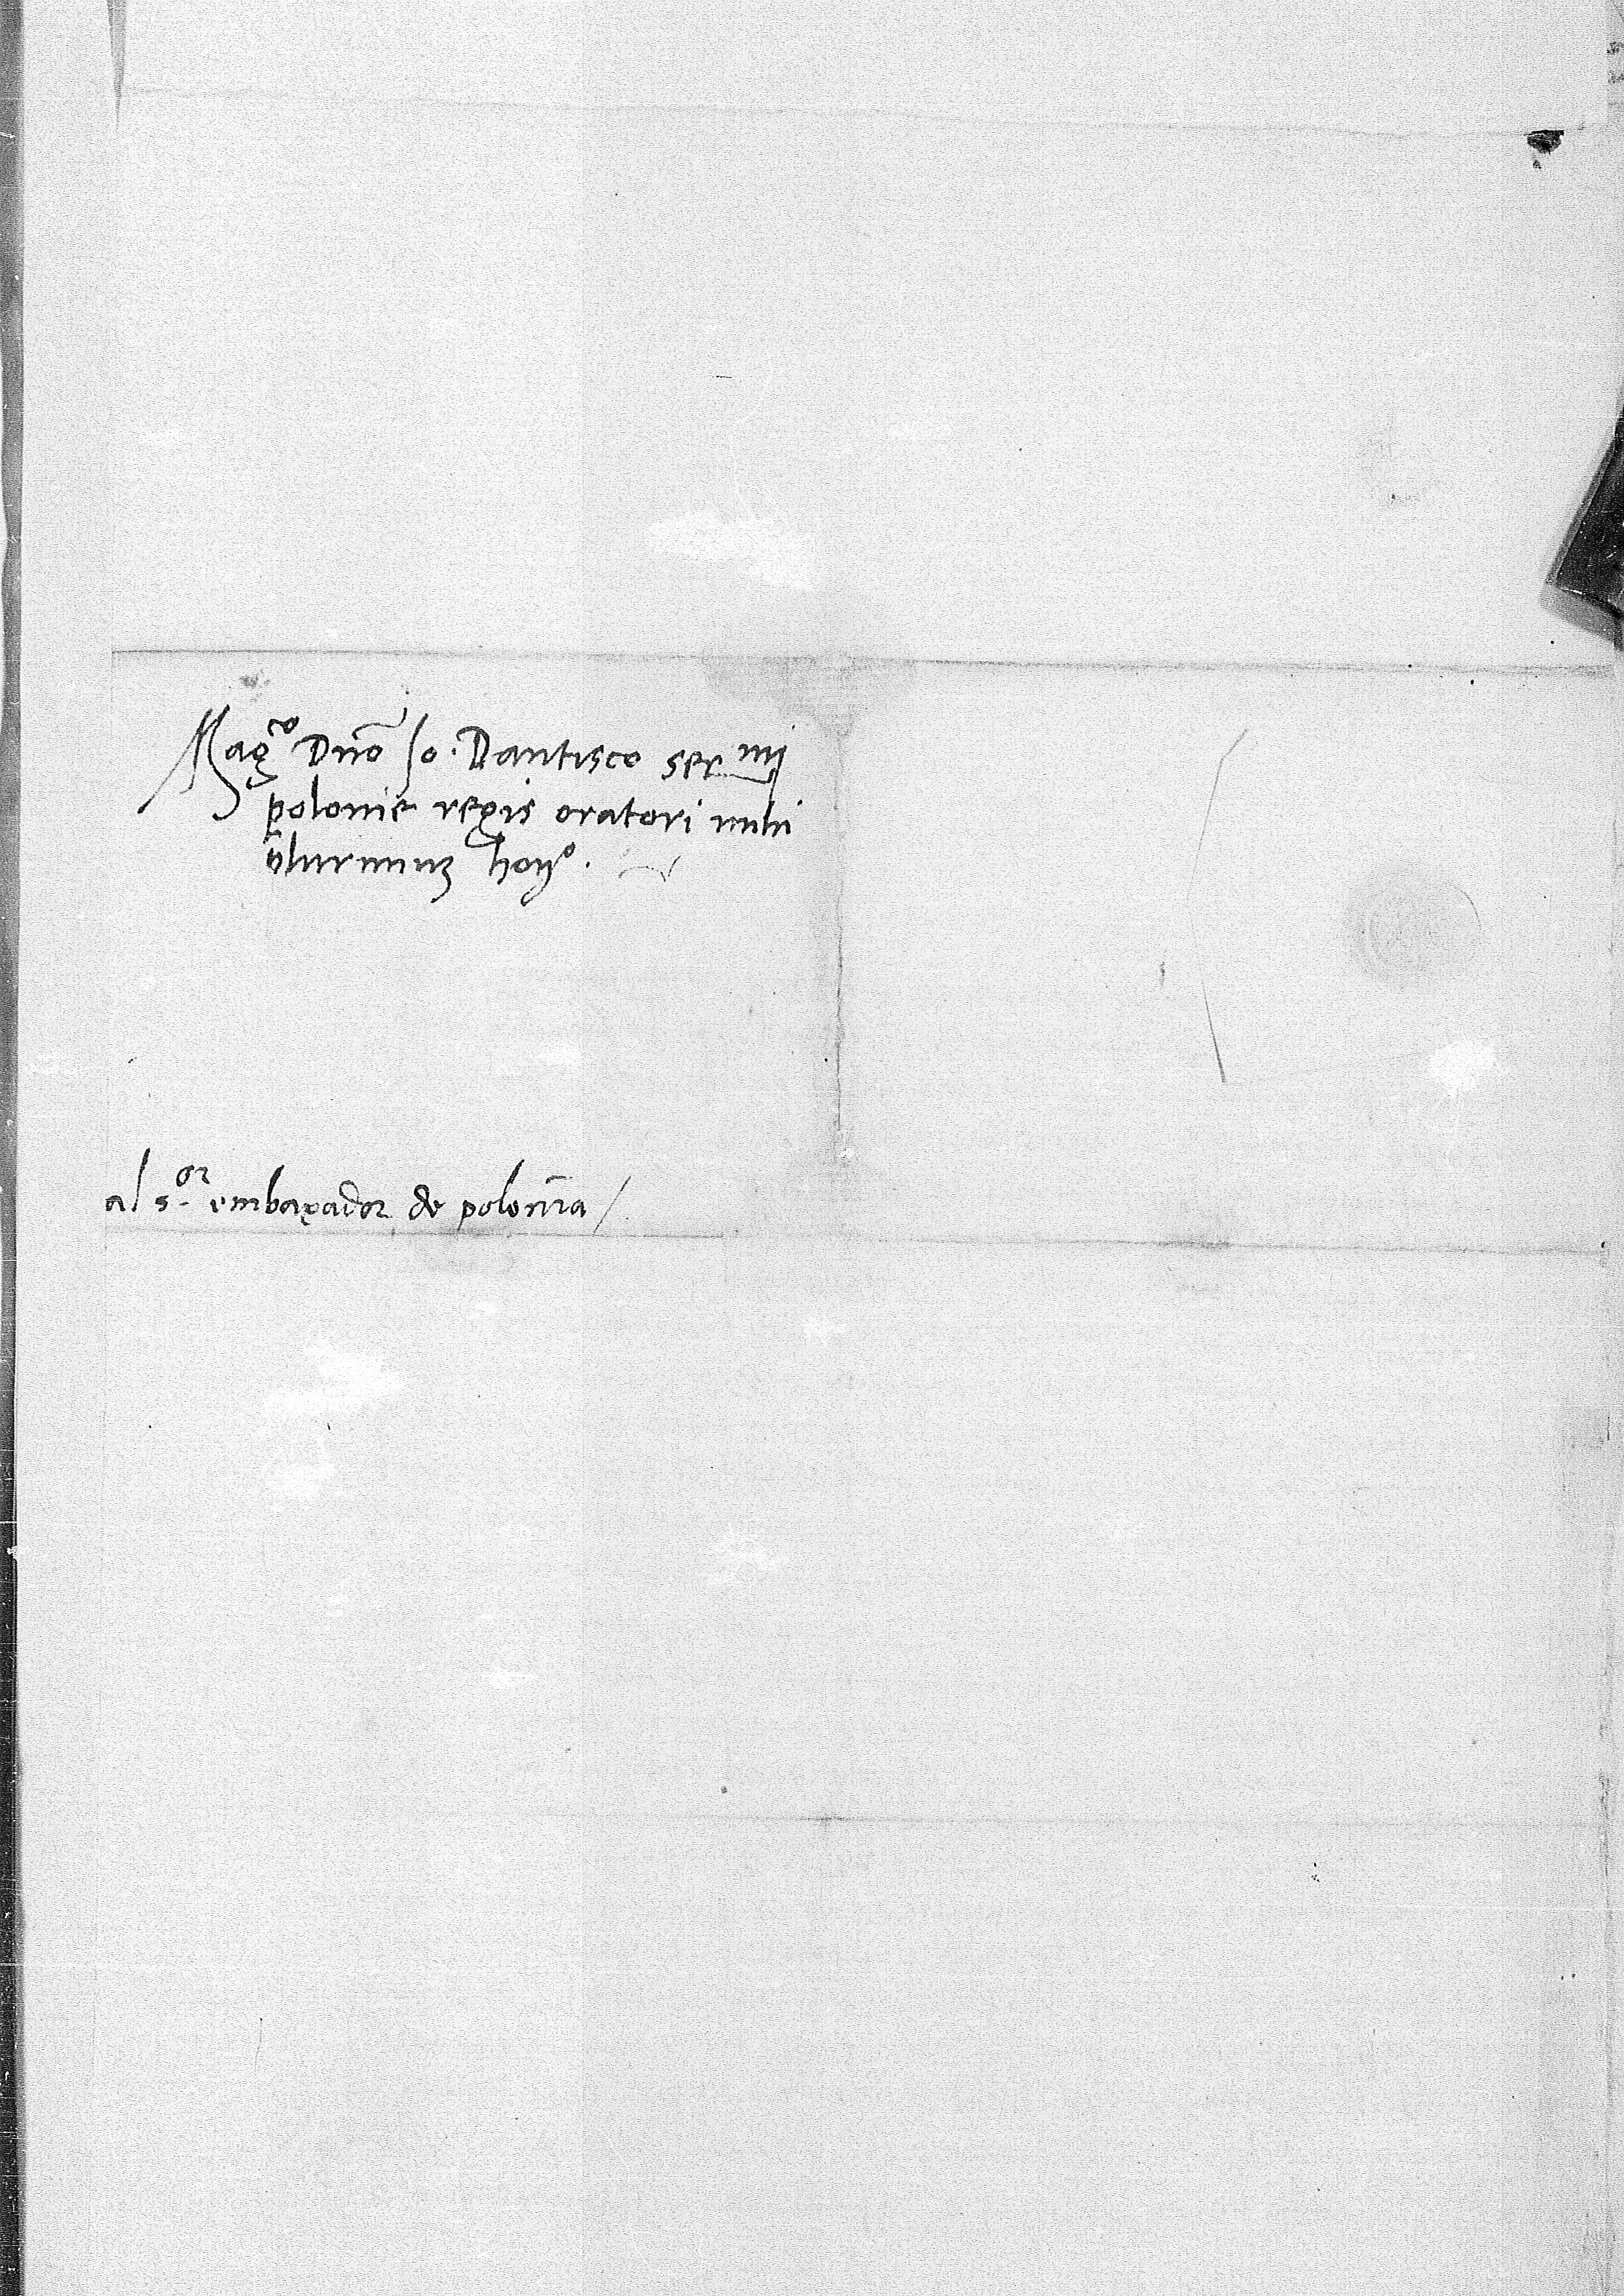 Mag^co Dnō Jo. Dantisco ser^mi
polonie regis oratori mihi
plurimuz hon^o.
al s.^or embaxador de polonia /